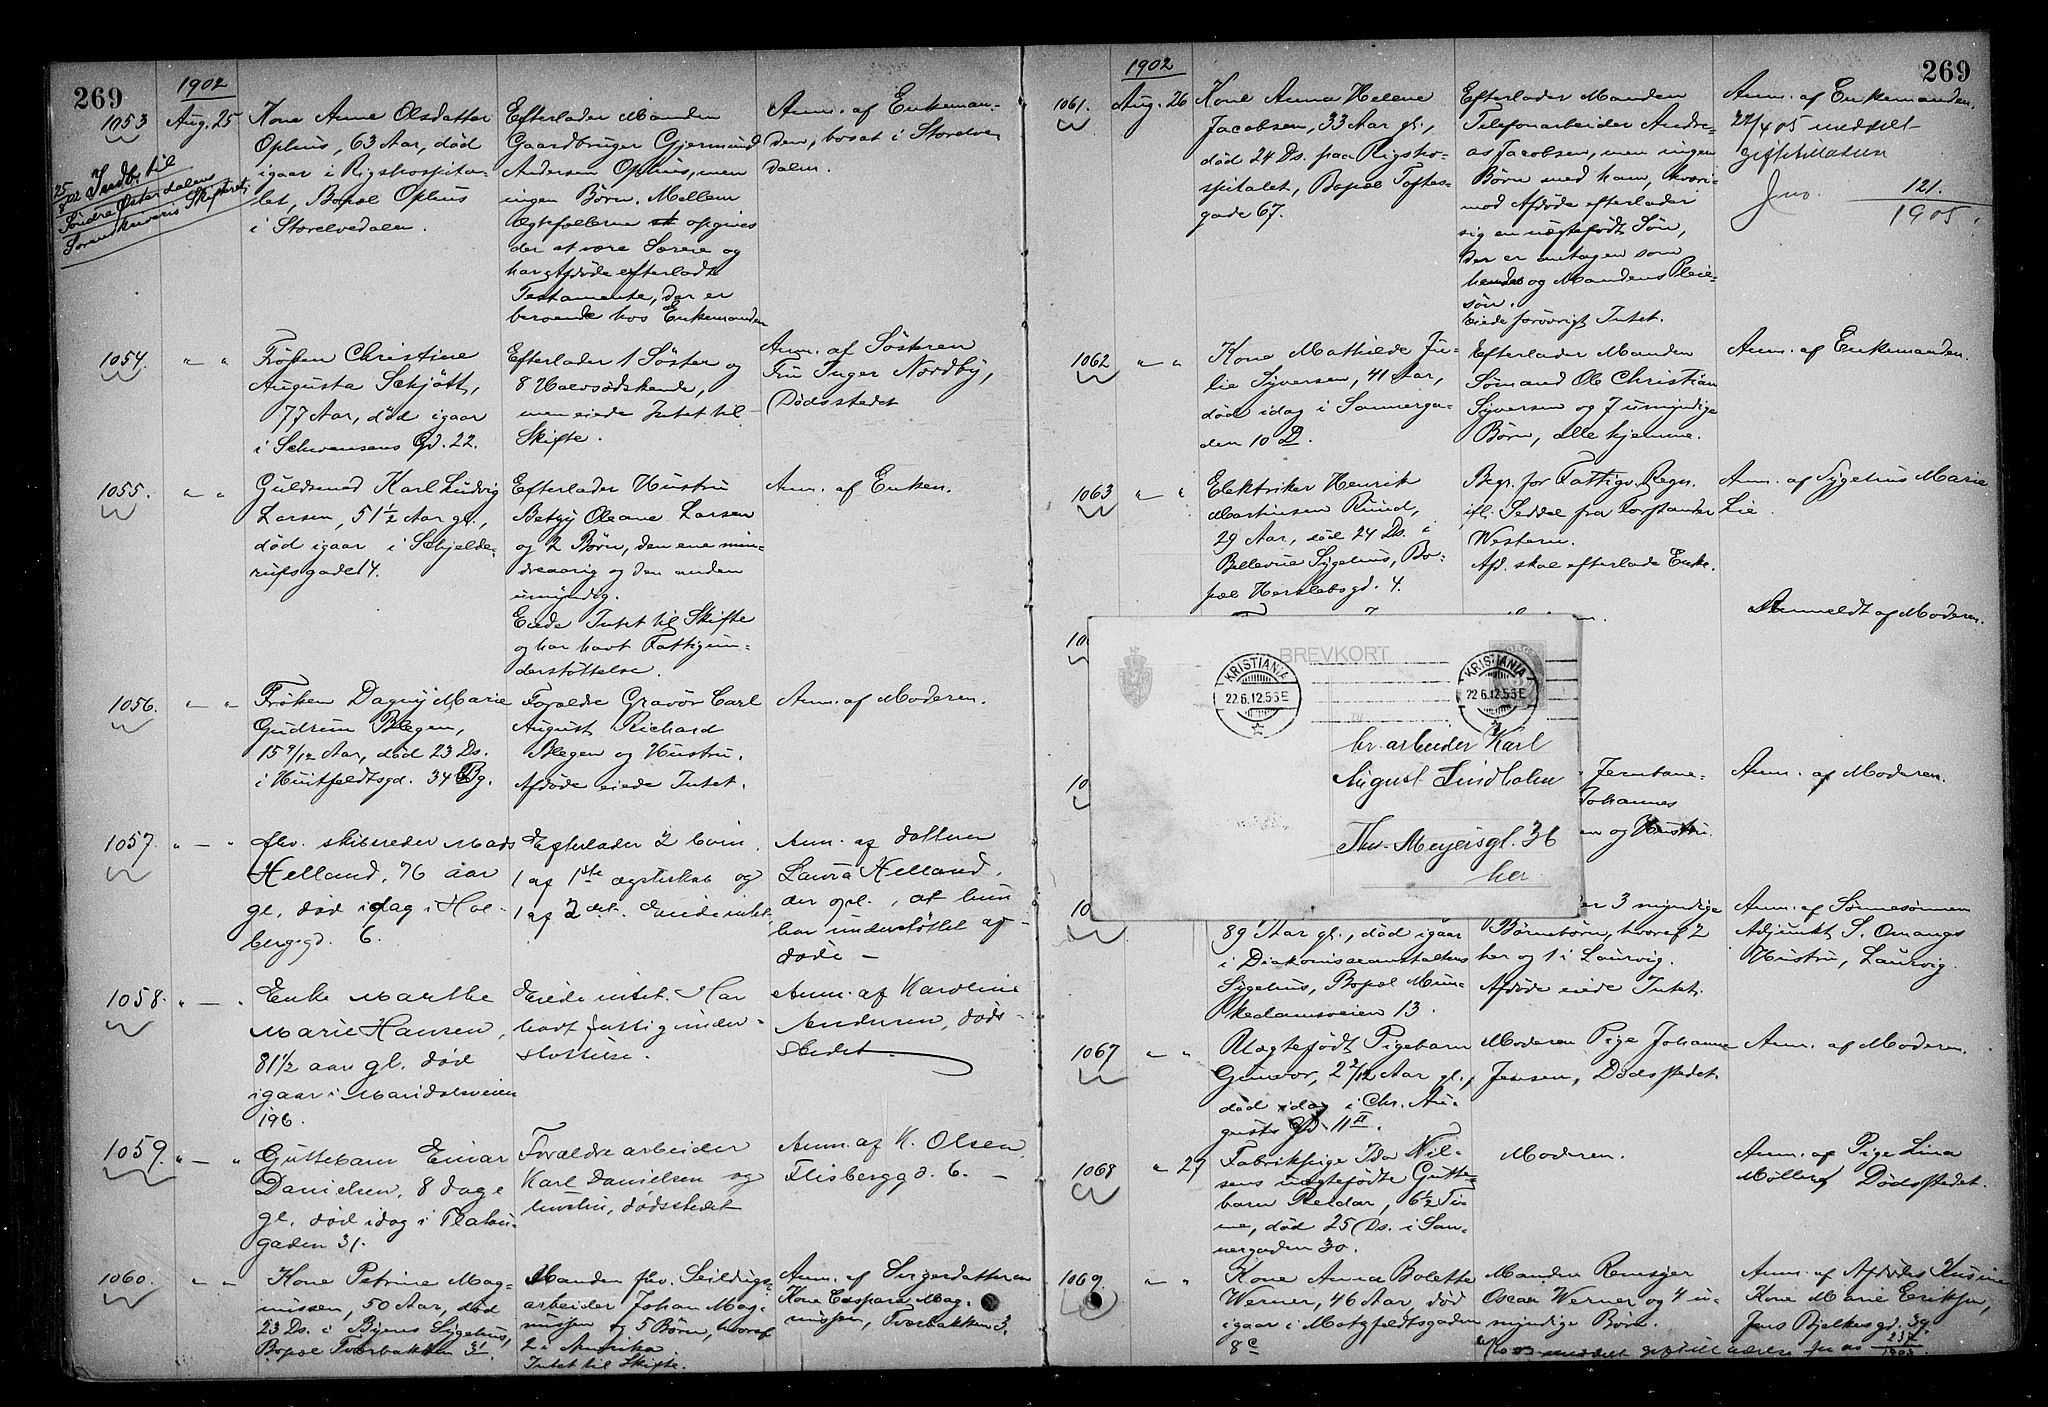 269
1902
1053
Aug. 25
Kone Anne Olsdatter
Ophus, 63 Aar, död
igaar i Rigshospita-
let, Bopæl Ophus
i Storelvedalen.
25/8 02 Indb. til
Söndre Østerdalens
Sorenskriveris Skifteret
Efterlader Manden
Gaardbruger Gjermund
Andersen Ophus, men
ingen Börn. Mellem
Ægtefællerne opgives
der at være Særeie og
har Afdöde efterladt
Testamente, der er
beroende hos Enkemanden
Anm. af Enkeman-
den, bosat i Storelve
dalen.
1054.
" "
Fröken Christine
Augusta Schjött,
77 Aar, död igaar
i Schwensens Gd. 22.
Efterlader 1 Söster og
8 Halvsödskende,
men eiede Intet til
Skifte.
Anm. af Søsteren
Fru Inger Nordby,
Dødsstedet
1055.
" "
Guldsmed Karl Ludvig
Larsen, 51 1/2 Aar gl.,
död igaar i Schjelde-
rupsgade 14.
Efterlader Hustru
Betzy Oleane Larsen
og 2 Börn, den ene min-
dreaarig og den anden
umyndig.
Eiede Intet til Skifte
og har havt Fattigun-
derstöttelse.
Anm. af Enken.
1056.
" "
Fröken Dagny Marie
Gudrun Blegen,
15 9/12 Aar, död 23 Ds.
i Huitfeldtsgd. 34 Bg.
Foræld­re Gravör Carl
August Richard
Blegen og Hustru.
Afdöde eiede Intet.
Anm. af Moderen.
1057.
" — "
fhv. skibsreder Mads
Helland, 76 aar
gl., död idag i Hol-
bergsgd. 6.
Efterlader 2 börn.
1 af 1ste ægteskab og
1 af 2det. Eiede intet
Anm. af datteren
Laura Helland,
der opl., at hun
har understöttet af-
döde —
1058.
" — "
Enke Marthe
Marie Hansen,
81 1/2 aar gl. död
igaar i Maridalsveien
196.
Eiede intet. Har
havt fattigunder-
støttelse.
Anm. af Karoline
Andersen, döds-
stedet
1059.
" — "
Guttebarn Einar
Danielsen, 8 dage
gl., död idag i Platou-
gaden 31.
Forældre arbeider
Karl Danielsen og
hustru, dödsstedet
Anm. af K. Olsen
Flisberggd. 6. —
1060.
" "
Kone Petrine Mag-
nussen, 50 Aar, död
23 Ds. i Byens Sygehus,
Bopæl Tverbakken 3.
Manden fhv. Seildugs-
arbeider Johan Mag-
nussen og 5 Börn, hvoraf
2 i Amerika.
Intet til Skifte.
Anm. af Svigerdatteren
Kone Caspara Mag-
nussen, Tverbakken 3.
269
1902
1061.
Aug. 26
Kone Anna Helene
Jacobsen, 33 Aar gl.,
död 24 Ds. paa Rigsho-
spitalet, Bopæl Toftes-
gade 67.
Efterlader Manden
Telefonarbeider Andre-
as Jacobsen, men ingen
Börn med ham, hvori-
mod Afdöde efterlader
sig en uægtefödt Sön,
der er antagen som
hendes og Mandens Pleie-
sön.
Eiede forövrigt Intet.
Anm. af Enkemanden.
22/4 05 meddelt
giftetilladelse
Jno. 121.
1905.
1062
" "
Kone Mathilde Ju-
lie Syversen, 41 Aar,
död idag i Sannerga-
den 10 D.
Efterlader Manden
Sömand Ole Christian
Syversen og 7 umyndige
Börn, alle hjemme.
Anm. af Enkemanden.
1063
" "
Elektriker Henrik
Martinsen Rund,
29 Aar, död 24 Ds. i
Bellevue Sygehus, Bo-
pæl Herslebsgd. 4.
Begr. for Fattigv. Regn.
ifl. Seddel fra Forstander
Western.
Afd. skal efterlade Enke.
Anm. af Sygehus Marie
Lie.
Anmeldt af Moderen.
BREVKORT
KRISTIANIA
22.6.12.5-6E
KRISTIANIA
22.6.12.5-6E
hr. arbeider Karl
August Lindholm
Thv. Meyersgt. 36
her
Jernbane-
Johannes
en og Hustru.
Anm. af Moderen.
89 Aar gl., död igaar
i Diakonisseanstaltens
Sygehus, Bopæl Mun-
kedamsveien 13.
er 3 myndige
Børnebörn, hvoraf 2
her og 1 i Laurvig.
Afdöde eiede Intet.
Anm. af Sønnesönnen
Adjunkt S. Omangs
Hustru, Laurvig.
1067
" "
Uægtefödt Pigebarn
Gunvor, 2 2/12 Aar gl.,
död idag i Chr. Au-
gusts Gd. 11 II.
Moderen Pige Johanne
Jensen, Dödsstedet.
Anm. af Moderen.
1068
" 27
Fabrikpige Ida Nil-
sens uægtefödte Gutte-
barn Reidar, 6 1/2 Ti-
me, död 25 Ds. i San-
nergaden 30.
Moderen.
Anm. af Pige Lina
Møller, Dödsstedet.
1069.
" "
Kone Anna Bolette
Werner, 46 Aar, död
igaar i Motzfeldtsgaden
8 c
Manden Remsejer
Oscar Werner og 4 u-
myndige Börn.
Anm. af Afdödes Kusine
Kone Marie Eriksen,
Jens Bjelkesgd. 39.